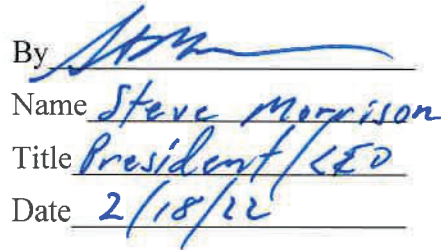 By
Name Steve Morrison
Title President/CEO
Date 2/18/22